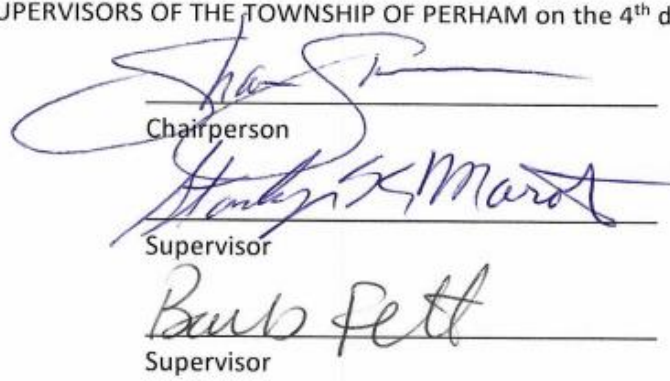 UPERVISORS OF THE TOWNSHIP OF PERHAM on the 4th d
Chairperson
Supervisor
Barb Fett
Supervisor